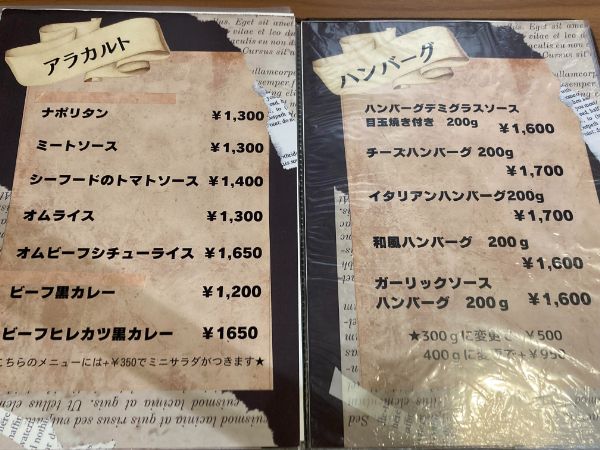 アラカルト
ナポリタン ￥1,300
ミートソース ￥1,300
シーフードのトマトソース ￥1,400
オムライス ￥1,300
オムビーフシチューライス ￥1,650
ビーフ黒カレー ￥1,200
ビーフヒレカツ黒カレー ￥1650
こちらのメニューには+￥350でミニサラダがつきます★
ハンバーグ
ハンバーグデミグラスソース
目玉焼き付き 200g ￥1,600
チーズハンバーグ 200g
￥1,700
イタリアンハンバーグ200g
￥1,700
和風ハンバーグ 200g
￥1,600
ガーリックソース
ハンバーグ 200g ￥1,600
★300gに変更で+￥500
400gに変更で+￥950